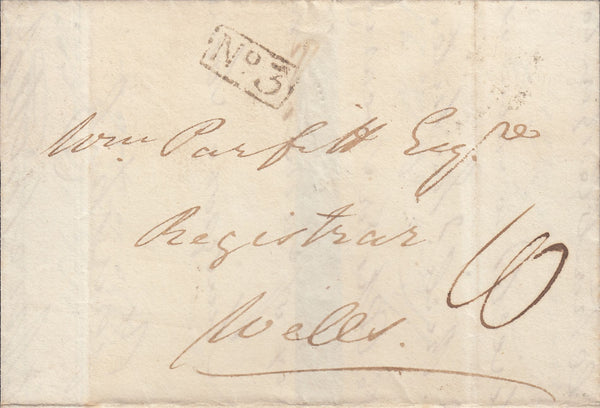 No. 3
Wm Parfitt Esqre
Registrar
Wells.